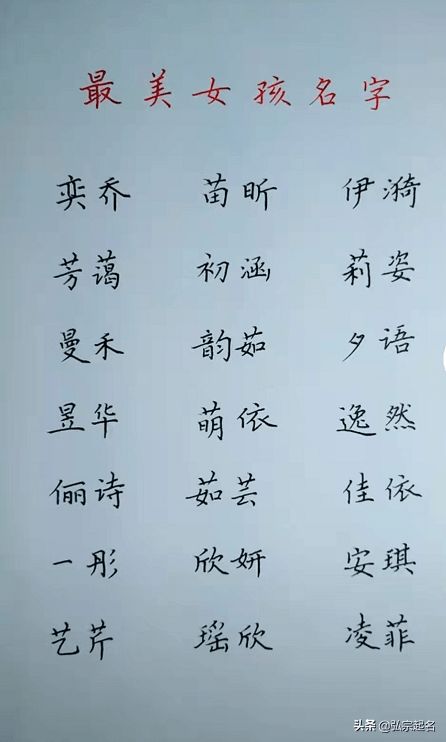 最美女孩名字
奕乔 苗昕 伊漪
芳蔼 初涵 莉姿
曼禾 韵茹 夕语
昱华 萌依 逸然
俪诗 茹芸 佳依
一彤 欣妍 安琪
艺芹 瑶欣 凌菲
头条 @弘宗起名